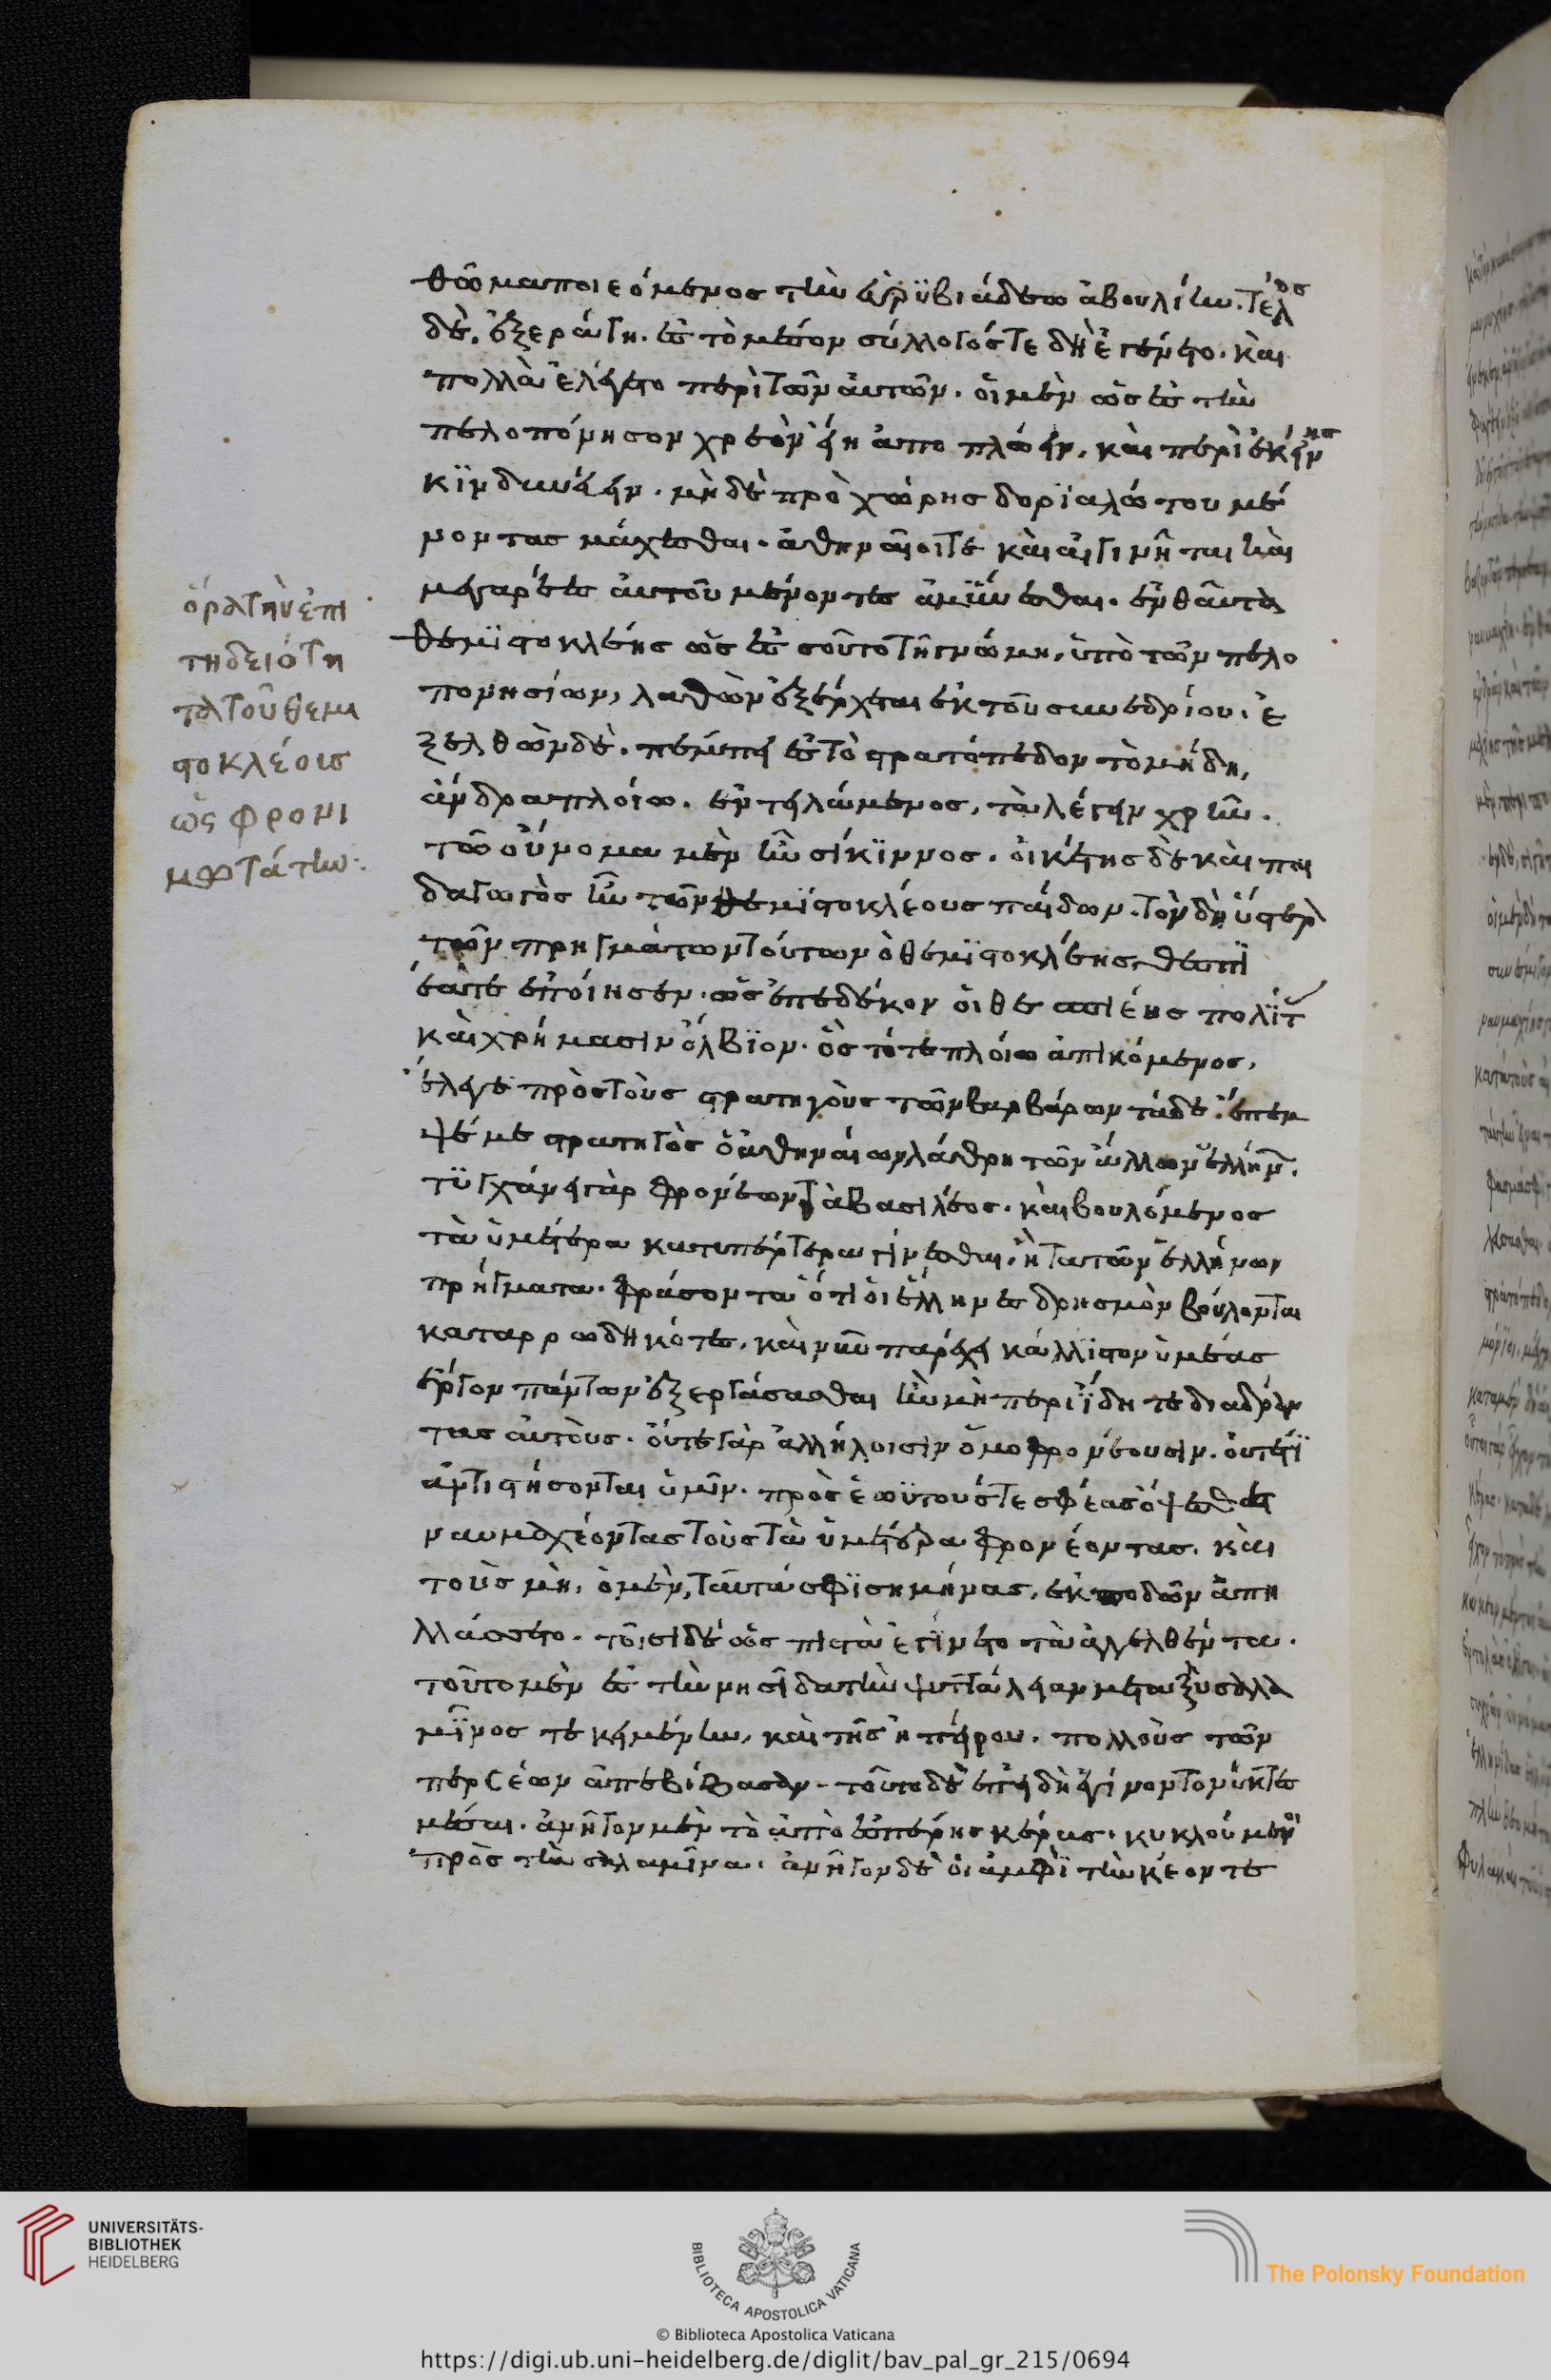 θῶμα ποιεόμενος τὴν εὐρυβιάδεω ἀβουλίην. τέλος
δὲ, ἐξερράγη. ἐς τὸ μέσον σύλλογός τε δὴ ἐγένετο. καὶ
πολλὰ ἐλέγετο περὶ τῶν αὐτῶν. οἱ μὲν ὡς ἐς τὴν
πελοπόνησον χρεὸν εἴη ἀποπλώειν, καὶ περὶ ἐκείνης
κινδυνεύειν. μὴ δὲ πρὸ χώρης δοριαλώτου μέ
νοντας μάχεσθαι. ἀθηναῖοι τὲ καὶ αἰγινῆται καὶ
μεγαρέες αὐτοῦ μένοντες ἀμύνεσθαι. ἐνθαῦτα
θεμιστοκλέης ὡς ἑσσοῦτο τῆ γνώμη, ὑπὸ τῶν πελο
πονησίων, λαθὼν ἐξέρχεται ἐκ τοῦ συνεδρίου. ἐ
ξελθὼν δὲ. πέμπει ἐς τὸ στρατόπεδον τὸ μήδων,
ἄνδρα πλοίω. ἐντειλάμενος, τὰ λέγειν χρεών.
τῶ οὔνομα μὲν ἦν σίκιννος. οἰκέτης δὲ καὶ παι
δαγωγὸς ἦν τῶν θεμιστοκλέους παίδων. τὸν δὴ ὕστερον
τῶν πρηγμάτων τούτων ὁ θεμιστοκλέης θεσπι
έα τε ἐποίησεν. ὡς ἐπεδέκοντο οἱ θεσπιέης πολιήτας
καὶ χρήμασιν ὄλβιον. ὃς τότε πλοίω ἀπικόμενος,
ἔλεγε πρὸς τοὺς στρατηγοὺς τῶν βαρβάρων τάδε. ἔπεμ
ψέ με στρατηγὸς ὁ ἀθηναίων λάθρη τῶν ἄλλων ἑλλήνων.
τυγχάνει γὰρ φρονέων τὰ βασιλέος. καὶ βουλόμενος
τὰ ὑμέτερα κατυπέρτερα γίνεσθαι, ἢ τὰ τῶν ἑλλήνων
πρήγματα. φράσοντα ὅτι οἱ ἕλληνες δρησμὸν βουλεύονται
καταρρωδηκότες, καὶ νῦν παρέχει κάλλιστον ὑμέας
ἔργον πάντων ἐξεργάσασθαι ἢν μὴ περιίδητε διαδράν
τας αὐτοὺς. οὔτε γὰρ ἀλλήλοισιν ὁμοφρονέουσιν. οὔτέτι
ἀντιστήσονται ὑμῖν. πρὸς ἑωυτούς τε σφέας ὄψεσθαι
ναυμαχέοντας τοὺς τὰ ὑμέτερα φρονέοντας. καὶ
τοὺς μὴ. ὁ μὲν, ταῦτά σφι σημήνας, ἐκποδὼν ἀπη
λλάσσετο. τοῖσι δὲ ὡς πιστὰ ἐγίνετο τὰ ἀγγελθέντα.
τοῦτο μὲν ἐς τὴν νησίδα τὴν ψυττάλειαν μεταξὺ σαλα
μῖνος τε κειμένην, καὶ τῆς ἠπείρου. πολλοὺς τῶν
περσέων ἀπεβίβασαν. τοῦτο δὲ ἐπειδὴ ἐγίνοντο νύκτες
μέσαι. ἀνῆγον μὲν τὸ ἀπὸ ἑσπέρης κέρας. κυκλούμενοι
πρὸς τὴν σαλαμῖνα. ἀνῆγον δὲ οἱ ἀμφὶ τὴν κέον τε
ὅρα τὴν ἐπι
τηδειότη
τα τοῦ θεμι
στοκλέους
ὡς φρονι
μωτάτην:
UNIVERSITÄTS-
BIBLIOTHEK
HEIDELBERG
BIBLIOTECA APOSTOLICA VATICANA
The Polonsky Foundation
© Biblioteca Apostolica Vaticana
https://digi.ub.uni-heidelberg.de/diglit/bav_pal_gr_215/0694